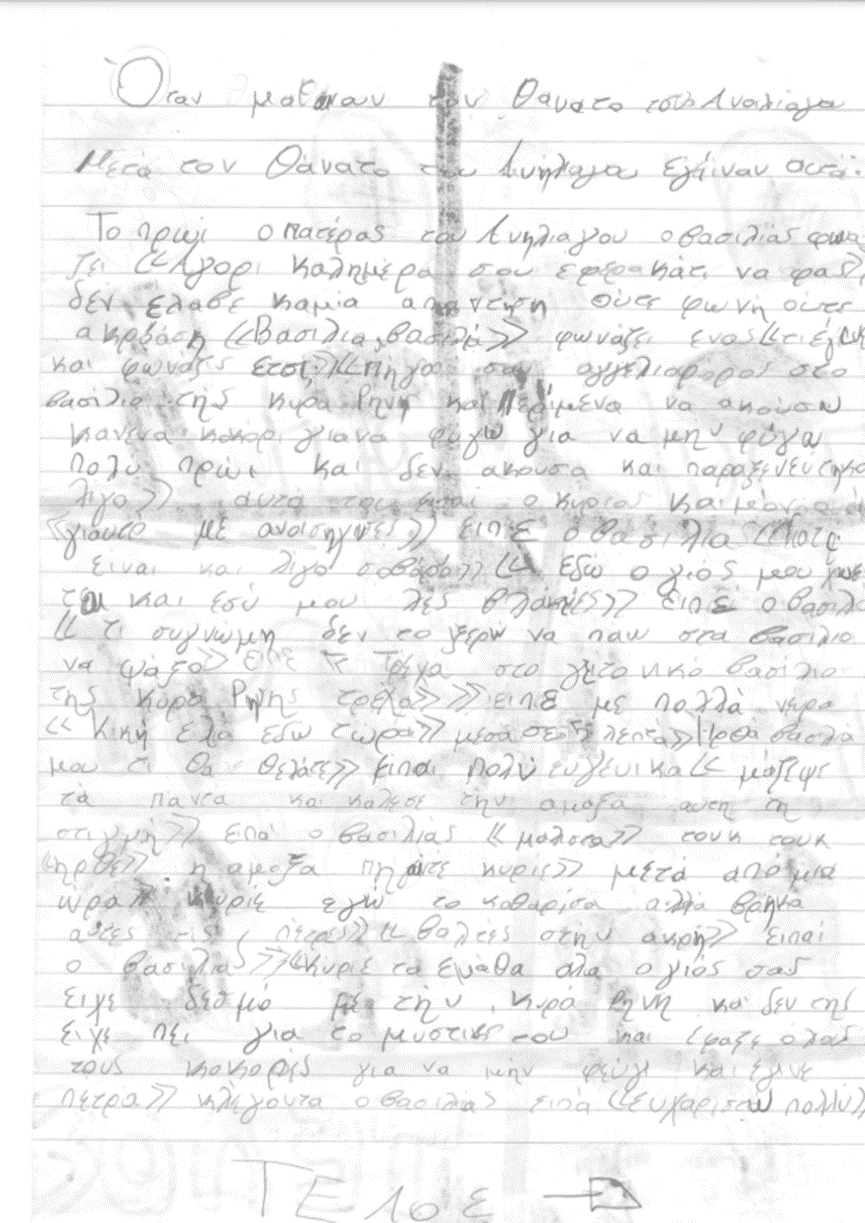 Όταν μαθαιναν τον θανατο του Ανηλιαγου
Μετά τον θάνατο του Ανήλιαγου εγιιναν αυτά.
Το πρωί ο πατέρας του Ανηλιαγου ο βασιλίας φωνα
ζει «Αγορι καλημέρα σου εφερα κάτι να φας»
δεν έλαβε καμία απαντηση ούτε φωνή ούτε
ακρόαση «Βασιλια, βασιλιά» φωνάζει ενας «τι εγινε
και φωνάζις ετσι;» «Πήγα σαν αγγελιαφορος στο
βασιλιο της κυρα Ρηνη και περίμενα να ακούσω
κανενα κοκορι για να φυγω για να μην φύγω
πολυ πρωι και δεν ακουσα και παραξενευτηκα
λιγο» αυτά του ειπαι ο κυριος
«γιαυτο με» ειπε ο βασιλια
ειναι και λίγο σοβαρο» « εδώ ο γιός μου
και εσύ μου λες βλακιες» ειπε ο βασιλ
« τι συγνώμη δεν το ξερω να παω στα βασιλιο
να ψαξω» ειπε « τρεχα στο γιτονικο βασιλιο
της κυρα Ρηνης τρεχα»» ειπε με πολλά νευρα
« Κική ελα εδω τώρα» μεσα σε 5 λεπτα» Ηρθα βασιλια
μου τι θα θελατε» ειπαι πολύ ευγενικα « μάζεψε
τα παντα και καλεσε την αμαξα αυτη τη
στιγμη» ειπά ο βασιλιάς «μαλιστα» τουκ τουκ
«ηρθε» η αμαξα πηγαιτε κυριε» μετά από μια
ώρα» κυριε εγω το καθαρισα αλλα βρηκα
αυτες τις πετρες» «βαλτες στην ακρη» ειπαι
ο βασιλιας» «Κυριε τα εμαθα ολα ο γιός σας
ειχε δεσμό με την κυρά Ρηνη και δεν της
ειχε πει για το μυστικο του και εφαξε ολους
τους κοκορες για να μην φευγι και εγινε
πετρα» κλεγοντα ο βασιλιας ειπα «ευχαριστω πολλυ»
ΤΕλος